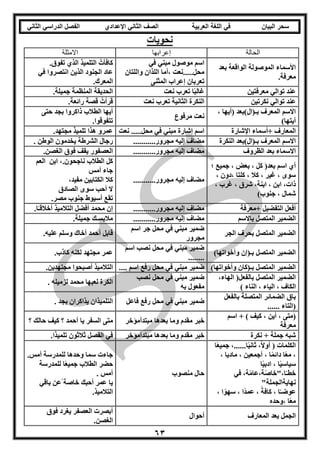 سحر البيان في اللغة العربية الصف الثاني الإعدادي الفصل الدراسي الثاني
نحويات
الحالة إعرابها الأمثلة
الأسماء الموصولة الواقعة بعد معرفة.
اسم موصول مبني في محل.....نعت ،أما اللذان واللتان تعربان إعراب المثنى
كافأت التلميذ الذي تفوق.
عاد الجنود الذين انتصروا في المعرك.
عند توالي معرفتين غالبًا تعرب نعت الحديقة المنظمة جميلة.
عند توالي نكرتين النكرة الثانية تعرب نعت قرأت قصة رائعة.
الاسم المعرف بـ(ال)بعد (أيها ، أيتها) نعت مرفوع أيها الطلاب ذاكروا بجد حتى تتفوقوا.
المعارف +أسماء الإشارة اسم إشارة مبني في محل..... نعت عمرو هذا تلميذ مجتهد.
الاسم المعرف بـ(ال)بعد النكرة مضاف إليه مجرور........... رجال الشرطة يخدمون الوطن .
الأسماء بعد الظروف مضاف إليه مجرور........... العصفور يقف فوق الغصن.
أي اسم بعد( كل ، بعض ، جميع ؛ سوى ، غير ، كلا ، كلتا ،دون ، ذات، ابن ، ابنة، شرق ، غرب ، شمال ، جنوب)
مضاف إليه مجرور...........
كل الطلاب ناجحون.- ابن العم جاء أمس
كلا الكتابين مفيد،
لا أحب سوى الصادق
تقع أسيوط جنوب مصر.
أفعل التفضيل +معرفة مضاف إليه مجرور........... إن محمد أفضل التلاميذ أخلاقًا.
الضمير المتصل بالاسم مضاف إليه مجرور........... ملابسك جميلة.
الضمير المتصل بحرف الجر ضمير مبني في محل جر اسم مجرور قابل أحمد أخاك وسلم عليه.
الضمير المتصل بـ(إن وأخواتها) ضمير مبني في محل نصب اسم ........ عمر مجتهد لكنه كاذب.
الضمير المتصل بـ(كان وأخواتها) ضمير مبني في محل رفع اسم .... التلاميذ أصبحوا مجتهدين.
الضمير المتصل بالفعل( الهاء، الكاف ، الياء ، الناء ) ضمير مبني في محل نصب مفعول به الكرة لعبها محمد لزميله .
باق الضمائر المتصلة بالفعل (التاء ...... ضمير مبني في محل رفع فاعل التلميذان يذاكران بجد .
(متى ، أين ، كيف ) + اسم معرفة خبر مقدم وما بعدها مبتدأمؤخر متى السفر يا أحمد ؟ كيف حالك ؟
شبه جملة + نكرة خبر مقدم وما بعدها مبتدأمؤخر في الفصل ثلاثون تلميذًا.
الكلمات ( أولاً، ثانيًا......، جميعًا ، معًا دائمًا ، أجمعين ، ماديا ، سياسيًا ، أدبيًا
خطئًا،"خاصة،عامةً، في نهايةالجملة"
عوضًا ، كافة ، عمدًا ، سهوًا ، معًا ،وحده
حال منصوب
جاءت سما وحدها للمدرسة أمس.
حضر الطلاب جميعًا للمدرسة أمس .
يا عمر أحبك خاصة عن باقي التلاميذ.
الجمل بعد المعارف أحوال أبصرت العصفر يغرد فوق الغصن.
٦٣